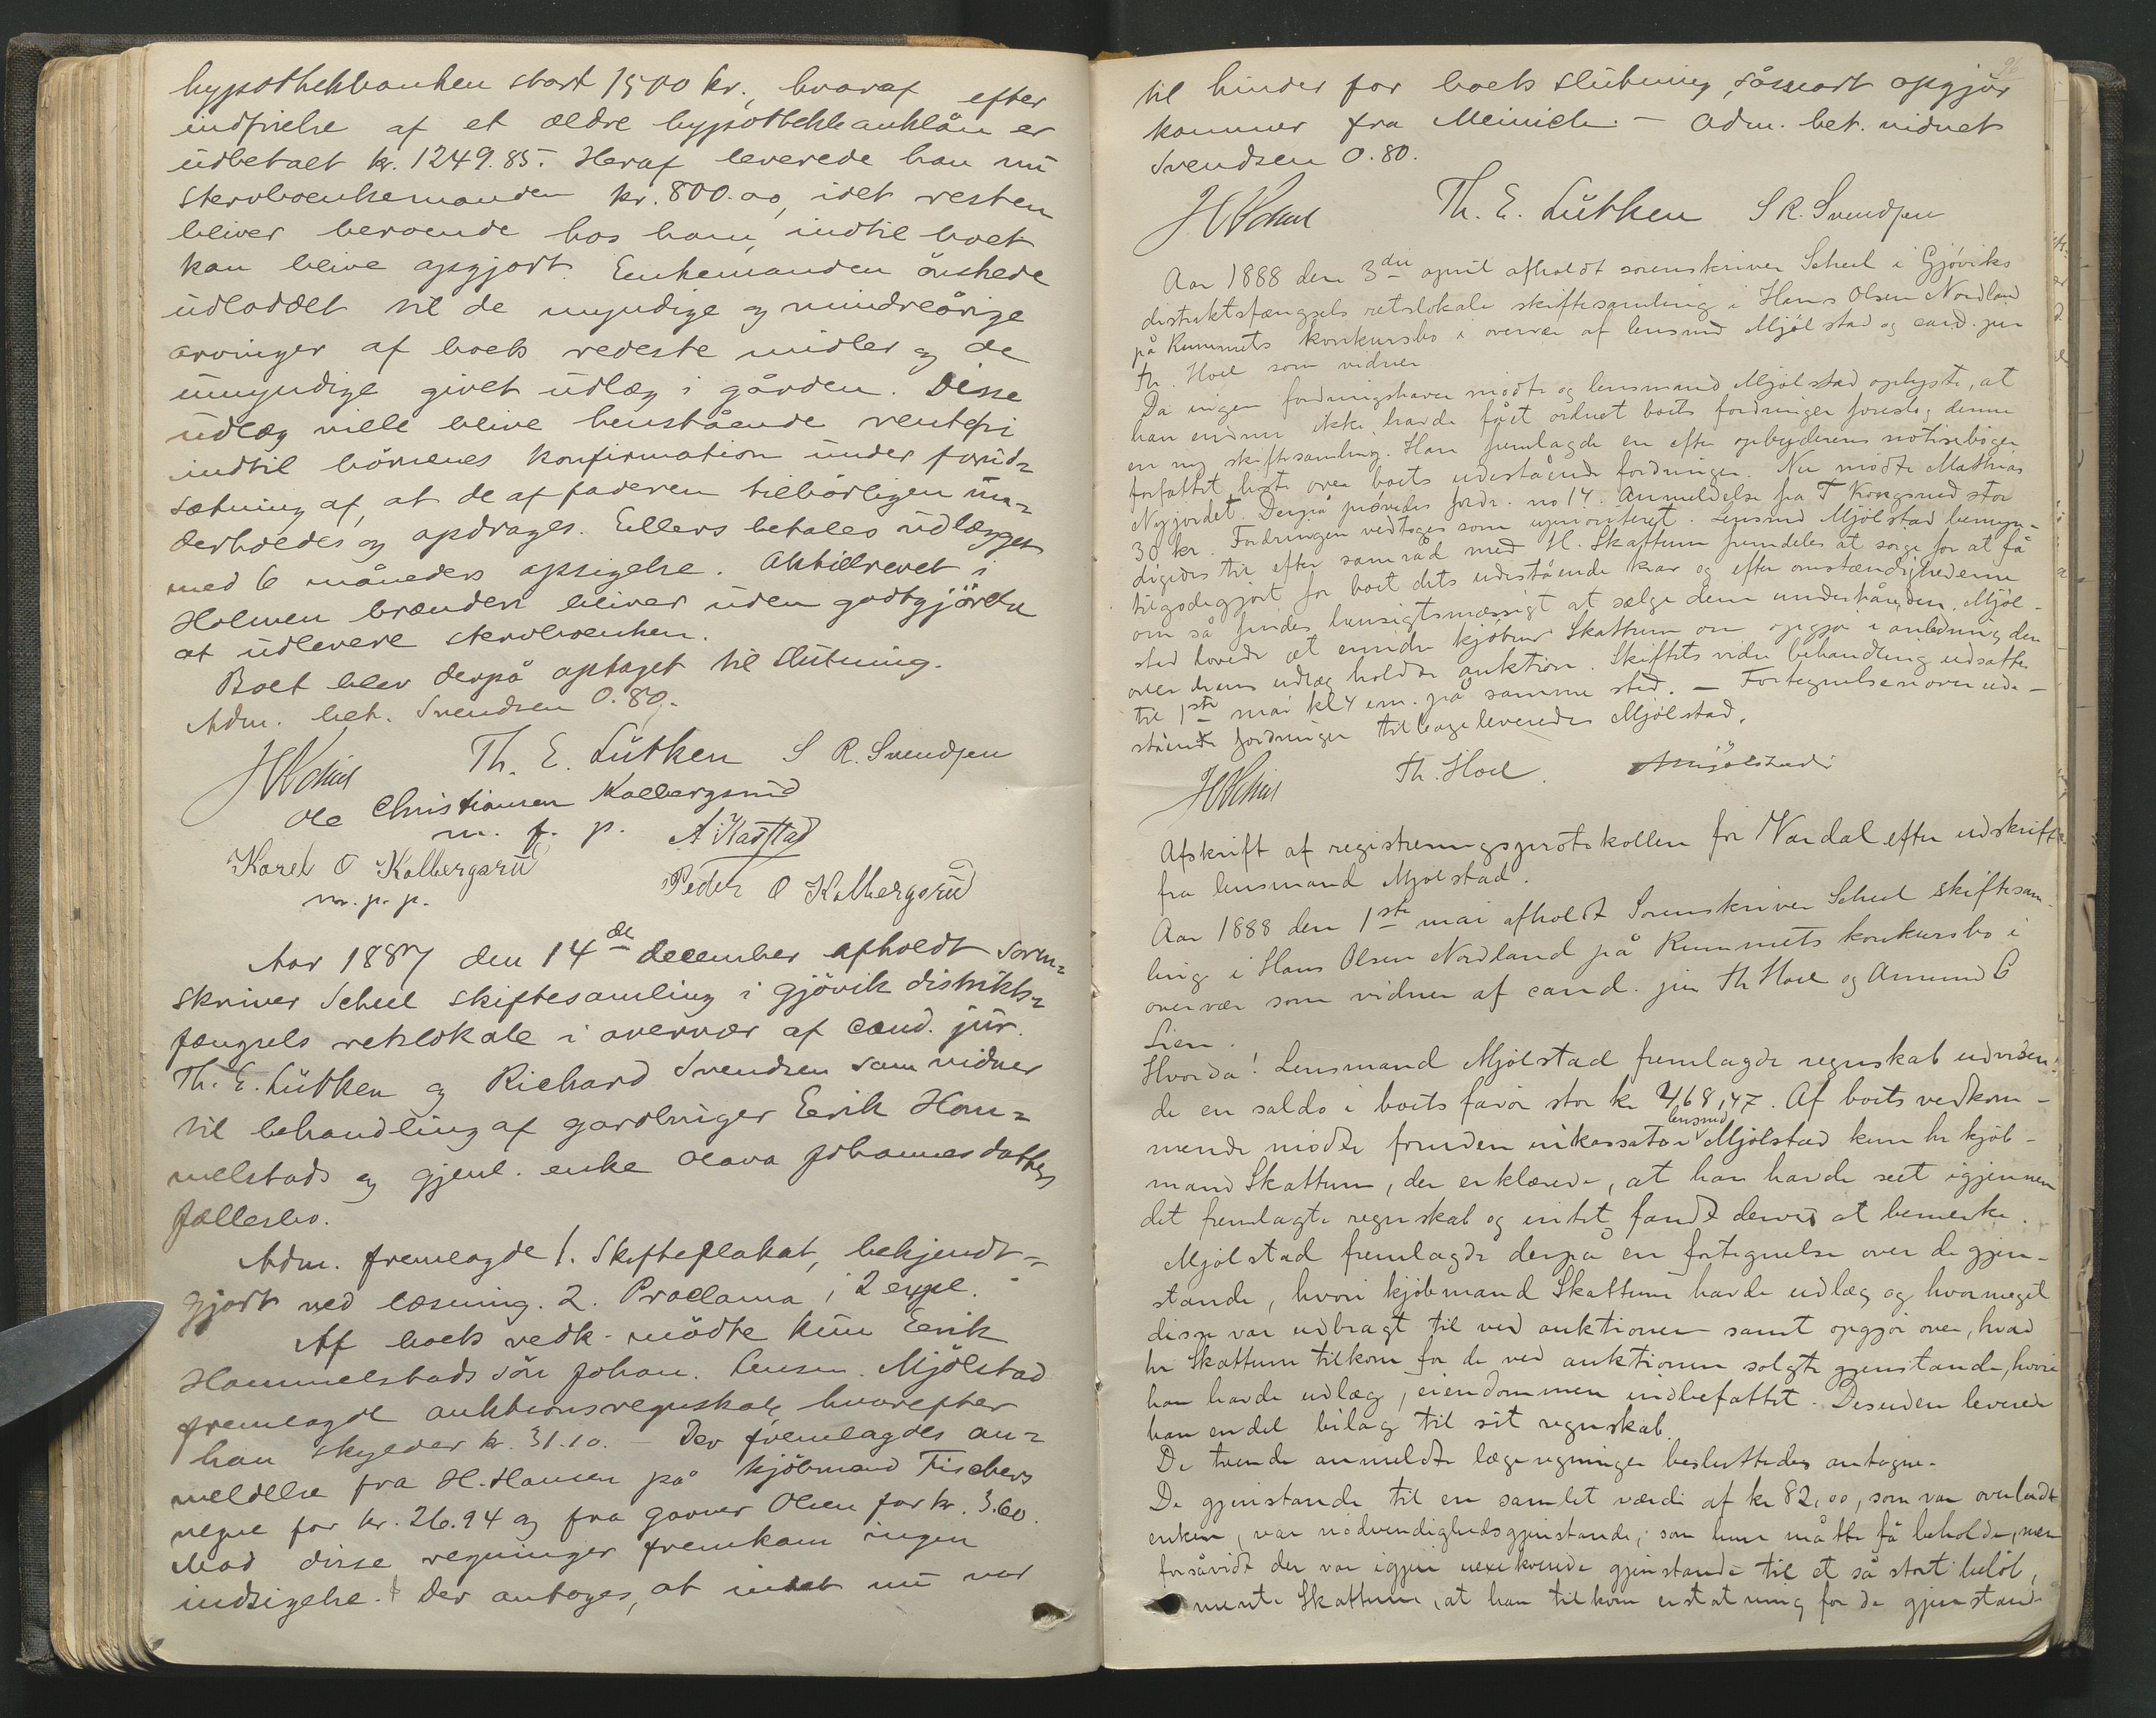 hypothekbanken stort 1500 kr., hvoraf efter
indfrielse af et ældre hypothekbanklån er
udbetalt kr. 1249.85. Heraf leverede han nu
stervboenkemanden kr. 800.00, idet resten
bliver beroende hos ham, indtil boet
kan blive opgjort. Enkemanden önskede
udloddet til de myndige og mindreårige
arvinger af boets redeste midler og de
umyndige givet udlæg i gården. Disse
udlæg ville blive henstående rentefri
indtil börnenes konfirmation under forud=
sætning af, at de af faderen tilbörligen un=
derholdes og opdrages. Ellers betales udlægget
med 6 måneders opsigelse. Aktiebrevet i
Holmen brænderi bliver uden godtgjörelse
at udlevere stervboenken.
Boet blev derpå optaget til slutning.
Adm. bet. Svendsen 0.80.
Th. E. Lütken S R. Svendsen
Ole Christiansen Kolbergsrud
m. f. p. A. Kastad
Karel O Kolbergsrud
m. p. p. Peder O Kolbergsrud
Aar 1887 den 14de december afholdt soren=
skriver Scheel skiftesamling i Gjövik distrikts=
fængsels retslokale i overvær af cand. jur.
Th. E. Lütken og Richard Svendsen som vidner
til behandling af gardbruger Eerik Hom=
melstads og gjenl. enke Olava Johannesdatters
fællesbo.
Adm. fremlagde 1. Skifteplakat, bekjendt=
gjort ved læsning. 2. Proclama i 2 expl.
Af boets vedk. mödte kun Eerik
Hammelstads sön Johan. Lensm. Mjölstad
fremlagde auktionsregnskab, hvorefter
han skylder kr. 31.10. — Der fremlagdes an=
meldelse fra H. Hansen på kjöbmand Fischers
vegne for kr. 26.94 og fra garver Olsen for kr. 3.60.
Mod disse regninger fremkom ingen
indsigelse. Der antoges, at intet nu var
til hinder for boets slutning, såsnart opgjör
kommer fra Meinich. — Adm. bet. vidnet
Svendsen 0.80.
Th. E. Lütken S R. Svendsen
Aar 1888 den 3die april afholdt sorenskriver Scheel i Gjøviks
distriktsfængsels retslokale skiftesamling i Hans Olsen Nordland
på Rummets konkursbo i overvær af lensmd Mjölstad og cand. jur
Th. Hoel som vidner
Da ingen fordringshaver mödte og lensmand Mjölstad oplyste, at
han endnu ikke havde fået ordnet boets fordringer foreslog denne
en ny skiftesamling. Han fremlagde en efter opbyderens notisebøger
forfattet liste over boets udestående fordringer. Nu mödte Mathias
Nyjordet. Derpå prøvedes fordr. no 14. Anmeldelse fra T Kongsrud stor
30 kr. Fordringen vedtoges som uprioriteret. Lensmd Mjölstad bemyn-
digedes til efter samråd med H. Skattum fremdeles at sørge for at få
tilgodegjort for boet dets udestående krav og efter omstændighederne
om så findes hensigtsmæssigt at sælge dem underhånden. Mjöl-
stad lovede at erindre kjöbmd Skattum om opgjør i anledning den
over hans udlæg holdte auktion. Skiftets videre behandling udsattes
til 1ste mai kl 4 em. på samme sted. — Fortegnelsen over ude-
stående fordringer tilbageleveredes Mjölstad.
Th. Hoel. AMjölstad
Afskrift af registreringsprotokollen for Vardal efter udskrift
fra lensmand Mjölstad.
Aar 1888 den 1ste mai afholdt Sorenskriver Scheel skiftesam-
ling i Hans Olsen Nordland på Rummets konkursbo i
overvær som vidner af cand. jur Th Hoel og Amund C
Lien.
Hvorda! Lensmand Mjölstad fremlagde regnskab udvisen-
de en saldo i boets favör stor kr 468,47. Af boets vedkom-
mende mödte foruden inkassator lensmd Mjölstad kun hr kjöb-
mand Skattum, der erklærede, at han havde seet igjennem
det fremlagte regnskab og intet fandt derved at bemerke.
Mjölstad fremlagde derpå en fortegnelse over de gjen-
stande, hvori kjöbmand Skattum havde udlæg og hvormeget
disse var udbragt til ved auktionen samt opgjör over, hvad
hr Skattum tilkom for de ved auktionen solgte gjenstande, hvori
han havde udlæg, eiendommen indbefattet. Desuden leverede
han endel bilag til sit regnskab.
De tvende anmeldte lægeregninger besluttedes antagne.
De gjenstande til en samlet værdi af kr 82,00, som var overladt
enken, var nödvendighedsgjenstande, som hun måtte få beholde, men
forsåvidt der var igjen uexekverede gjenstande til et så stort belöb,
mente Skattum, at han tilkom erstatning for de gjenstande